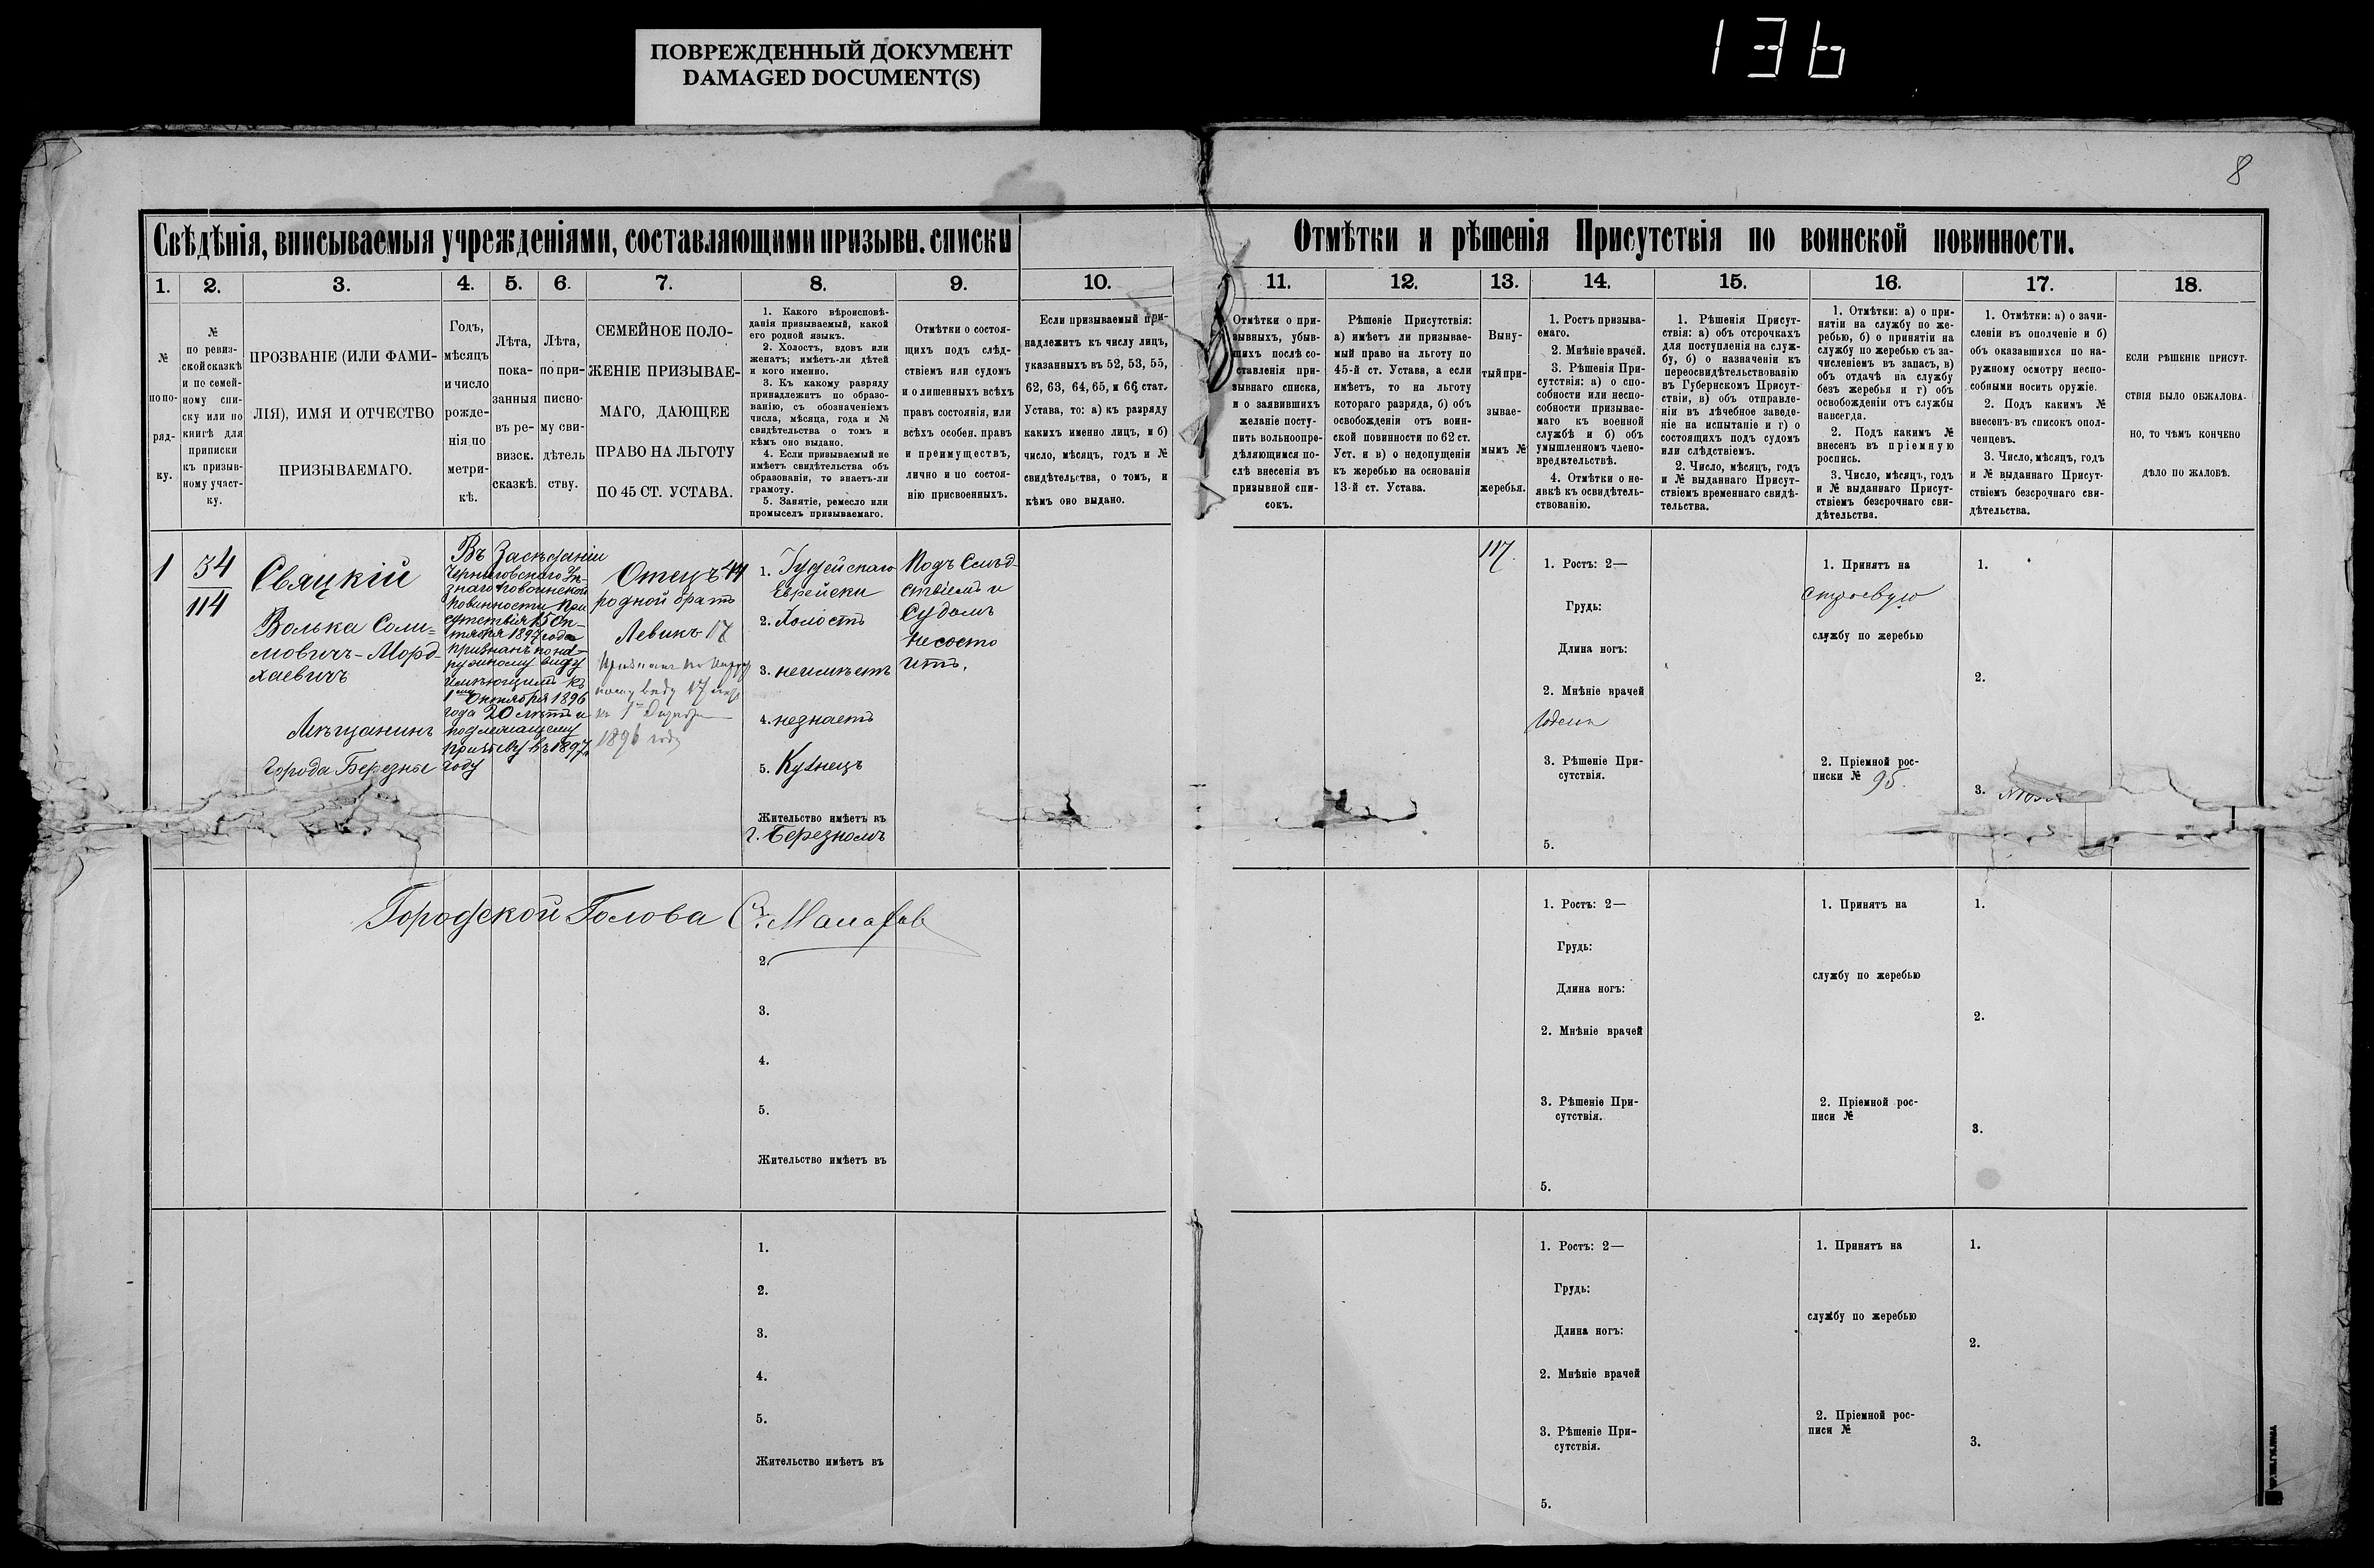 ПОВРЕЖДЕННЫЙ ДОКУМЕНТ
DAMAGED DOCUMENT(S)
136
8
Свѣдѣнія, вписываемыя учрежденіями, составляющими призывн. списки
Отмѣтки и рѣшенія Присутствія по воинской повинности.
1.
№
по по-
ряд-
ку.
2.
№
по ревиз-
ской сказкѣ
и по семей-
ному спи-
ску или по
книгѣ для
приписки
къ призыв-
ному участ-
ку.
3.
ПРОЗВАНІЕ (ИЛИ ФАМИ-
ЛІЯ), ИМЯ И ОТЧЕСТВО
ПРИЗЫВАЕМАГО.
4.
Годъ,
мѣсяцъ
и число
рожде-
нія по
метри-
кѣ.
5.
Лѣта,
пока-
занныя
въ ре-
визск.
сказкѣ.
6.
Лѣта,
по при-
писно-
му сви-
дѣтель
ству.
7.
СЕМЕЙНОЕ ПОЛО-
ЖЕНІЕ ПРИЗЫВАЕ-
МАГО, ДАЮЩЕЕ
ПРАВО НА ЛЬГОТУ
ПО 45 СТ. УСТАВА.
8.
1. Какого вѣроисповѣ-
данія призываемый, какой
его родной языкъ.
2. Холостъ, вдовъ или
женатъ; имѣетъ-ли дѣтей
и кого именно.
3. Къ какому разряду
принадлежитъ по образо-
ванію, съ обозначеніемъ
числа, мѣсяца, года и №
свидѣтельства о томъ и
кѣмъ оно выдано.
4. Если призываемый не
имѣетъ свидѣтельства объ
образованіи, то знаетъ-ли
грамоту.
5. Занятіе, ремесло или
промыселъ призываемаго.
9.
Отмѣтки о состоя-
щихъ подъ слѣд-
ствіемъ или судомъ
и о лишенныхъ всѣхъ
правъ состоянія, или
всѣхъ особен. правъ
и преимуществъ,
лично и по состоя-
нію присвоенныхъ.
10.
Если призываемый при-
надлежитъ къ числу лицъ,
указанныхъ въ 52, 53, 55,
62, 63, 64, 65, и 66 стат.
Устава, то: а) къ разряду
какихъ именно лицъ, и б)
число, мѣсяцъ, годъ и №
свидѣтельства, о томъ, и
кѣмъ оно выдано.
11.
Отмѣтки о при-
зывныхъ, убыв-
шихъ послѣ со-
ставленія при-
зывнаго списка,
и о заявившихъ
желаніе посту-
пить вольноопре-
дѣляющимся по-
слѣ внесенія въ
призывной спи-
сокъ.
12.
Рѣшеніе Присутствія:
а) имѣетъ ли призывае-
мый право на льготу по
45-й ст. Устава, а если
имѣетъ, то на льготу
котораго разряда, б) объ
освобожденіи отъ воин-
ской повинности по 62 ст.
Уст. и в) о недопущеніи
къ жеребью на основаніи
13-й ст. Устава.
13.
Выну-
тый при-
зывае-
мымъ №
жеребья.
14.
1. Ростъ призыва-
емаго.
2. Мнѣніе врачей.
3. Рѣшенія При-
сутствія: а) о спо-
собности или неспо-
собности призывае-
маго къ военной
службѣ и б) объ
умышленномъ члено-
вредительствѣ.
4. Отмѣтки о не-
явкѣ къ освидѣтель-
ствованію.
15.
1. Рѣшенія Присут-
ствія: а) объ отсрочкахъ
для поступленія на служ-
бу, б) о назначеніи къ
переосвидѣтельствованію
въ Губернскомъ Присут-
ствіи, в) объ отправле-
ніе въ лѣчебное заведе-
ніе на испытаніе и г) о
состоящихъ подъ судомъ
или слѣдствіемъ.
2. Число, мѣсяцъ, годъ
и № выданнаго Присут-
ствіемъ временнаго свидѣ-
тельства.
16.
1. Отмѣтки: а) о при-
нятіи на службу по же-
ребью, б) о принятіи на
службу по жеребью съ за-
численіемъ въ запасъ, в)
объ отдачѣ на службу
безъ жеребья и г) объ
освобожденіи отъ службы
навсегда.
2. Подъ какимъ №
внесенъ въ пріемную
роспись.
3. Число, мѣсяцъ, годъ
и № выданнаго Присут-
ствіемъ безсрочнаго сви-
дѣтельства.
17.
1. Отмѣтки: а) о зачи-
сленіи въ ополченіе и б)
объ оказавшихся по на-
ружному осмотру неспо-
собными носить оружіе.
2. Подъ какимъ №
внесенъ въ списокъ опол-
ченцевъ.
3. Число, мѣсяцъ, годъ
и № выданнаго Присут-
ствіемъ безсрочнаго сви-
дѣтельства.
18.
ЕСЛИ РѢШЕНІЕ ПРИСУТ-
СТВІЯ БЫЛО ОБЖАЛОВА-
НО, ТО ЧѢМЪ КОНЧЕНО
ДѢЛО ПО ЖАЛОБѢ.
1
34
114
Свяцкій
Волька Соли=
мовичъ-Морд-
хаевичъ
Мѣщанинъ
Города Березны
Въ Засѣданіи
Черниговскаго Уѣ-
зднаго по воинской
повинности При
сутствія 15 Ок-
тября 1897 года
признанъ по на-
ружному виду
имѣющимъ къ
1му Октября 1896
года 20 лѣтъ и
подлежащему
призыву въ 1897
году
Отецъ 44
родной братъ
Левикъ 17
Признанъ по наруж
ному виду 17 лѣтъ
къ 1
1896 году
1. Іудейскаго
Еврейски
2. Холостъ
3. неимѣетъ
4. незнаетъ
5. Кузнецъ
Жительство имѣетъ въ
г. Березномъ
Подъ Слѣд-
ствіемъ и
Судомъ
не состо
итъ.
117.
1. Ростъ: 2—
Грудь:
Длина ногъ:
2. Мнѣніе врачей
Годенъ
3. Рѣшеніе При-
сутствія.
5.
1. Принятъ на
строевую
службу по жеребью
2. Пріемной рос-
писки № 95.
1.
2.
3.
Городской Голова С.
2.
3.
4.
5.
Жительство имѣетъ въ
1. Ростъ: 2—
Грудь:
Длина ногъ:
2. Мнѣніе врачей
3. Рѣшеніе При-
сутствія.
5.
1. Принятъ на
службу по жеребью
2. Пріемной рос-
писи №
1.
2.
3.
1.
2.
3.
4.
5.
Жительство имѣетъ въ
1. Ростъ: 2—
Грудь:
Длина ногъ:
2. Мнѣніе врачей
3. Рѣшеніе При-
сутствія.
5.
1. Принятъ на
службу по жеребью
2. Пріемной рос-
писи №
1.
2.
3.